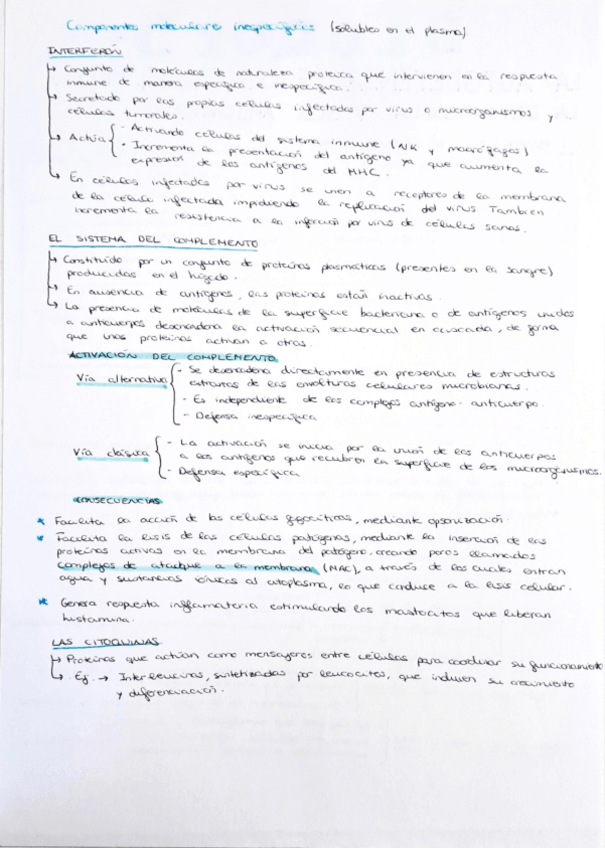 Componentes moleculares inespecíficos (solubles en el plasma)
INTERFERÓN
↳ Conjunto de moléculas de naturaleza proteica que intervienen en la respuesta
inmune de manera específica e inespecífica.
↳ Secretado por las propias células infectadas por virus o microorganismos y
células tumorales.
↳ Actúa { - Activando células del sistema inmune (NK y macrófagos)
- Incrementa la presentación del antígeno ya que aumenta la
expresión de los antígenos del MHC.
↳ En células infectadas por virus se unen a receptores de la membrana
de la célula infectada impidiendo la replicación del virus También
incrementa la resistencia a la infección por virus de células sanas.
EL SISTEMA DEL COMPLEMENTO
↳ Constituido por un conjunto de proteínas plasmáticas (presentes en la sangre)
producidas en el hígado.
↳ En ausencia de antígenos, las proteínas están inactivas.
↳ La presencia de moléculas de la superficie bacteriana o de antígenos unidos
a anticuerpos desencadena la activación secuencial en cascada, de forma
que unas proteínas activan a otras.
ACTIVACIÓN DEL COMPLEMENTO
Vía alternativa { - Se desencadena directamente en presencia de estructuras
extrañas de las envolturas celulares microbianas.
- Es independiente de los complejos antígeno-anticuerpo.
- Defensa inespecífica
Vía clásica { - La activación se inicia por la unión de los anticuerpos
a los antígenos que recubren la superficie de los microorganismos.
- Defensa específica
CONSECUENCIAS
* Facilita la acción de las células fagocíticas, mediante opsonización.
* Facilita la lisis de las células patógenas, mediante la inserción de las
proteínas activas en la membrana del patógeno, creando poros llamados
complejos de ataque a la membrana (MAC), a través de los cuales entran
agua y sustancias iónicas al citoplasma, lo que conduce a la lisis celular.
* Genera respuesta inflamatoria estimulando los mastocitos que liberan
histamina.
LAS CITOQUINAS
↳ Proteínas que actúan como mensajeros entre células para coordinar su funcionamiento
↳ Ej. → Interleucinas, sintetizadas por leucocitos, que inducen su crecimiento
y diferenciación.